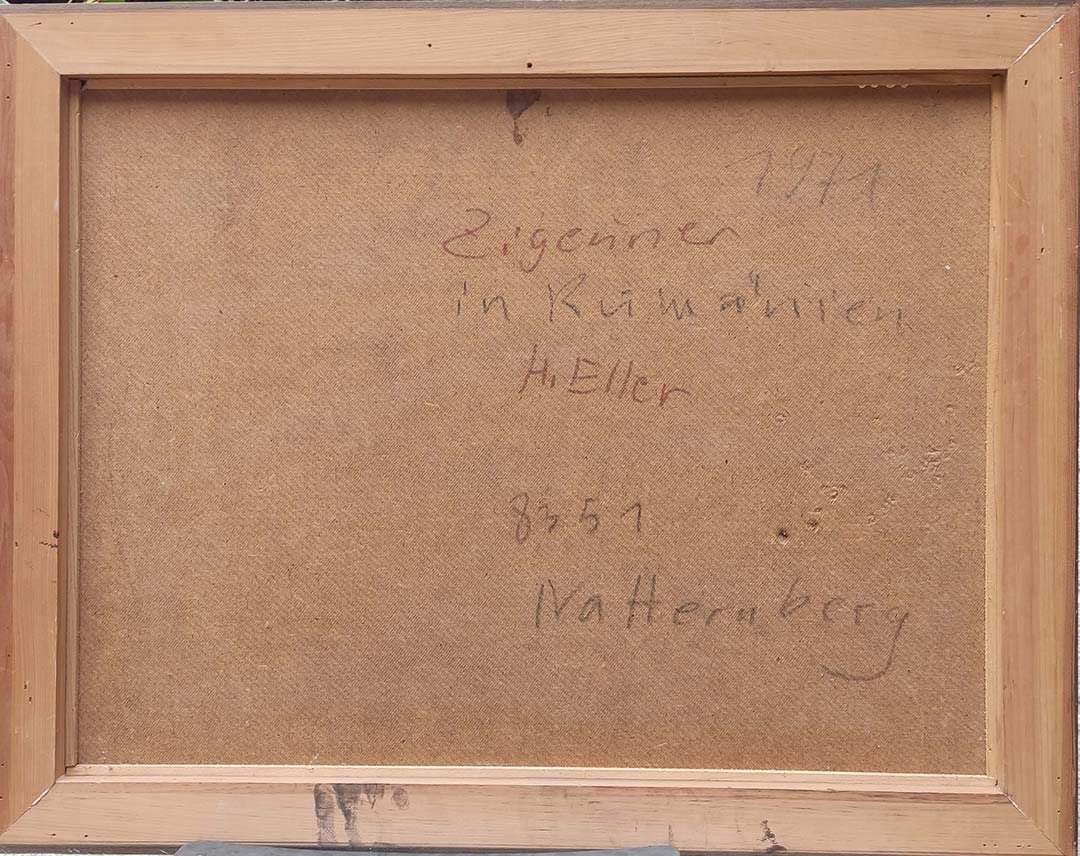 1971
Zigeuner
in Rumänien
H. Eller
8351
Natternberg